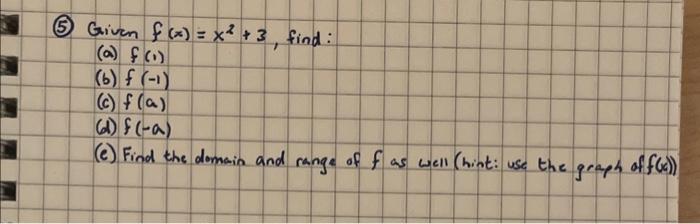 ⑤ Given f(x) = x² + 3, find:
(a) f(1)
(b) f(-1)
(c) f(a)
(d) f(-a)
(e) Find the domain and range of f as well (hint: use the graph of f(x))